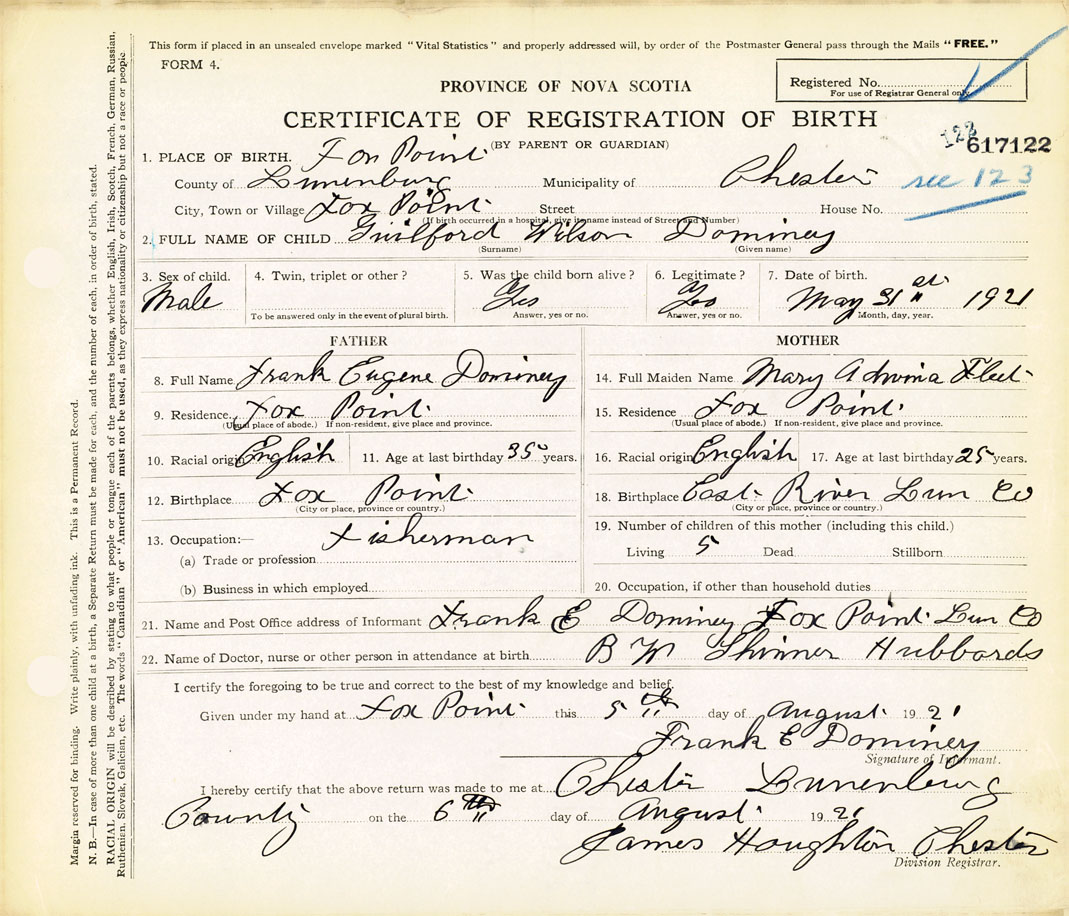 This form if placed in an unsealed envelope marked "Vital Statistics" and properly addressed will, by order of the Postmaster General pass through the Mails "FREE."
FORM 4.
PROVINCE OF NOVA SCOTIA
Registered No.
For use of Registrar General only
CERTIFICATE OF REGISTRATION OF BIRTH
(BY PARENT OR GUARDIAN)
122
617122
see 123
1. PLACE OF BIRTH. Fox Point
County of Lunenburg Municipality of Chester
City, Town or Village Fox Point Street House No.
(If birth occurred in a hospital, give its name instead of Street and Number)
2. FULL NAME OF CHILD Guilford Wilson Dominey
(Surname) (Given name)
3. Sex of child. 4. Twin, triplet or other? 5. Was the child born alive? 6. Legitimate? 7. Date of birth.
Male Yes Yes May 31st 1921
To be answered only in the event of plural birth. Answer, yes or no. Answer, yes or no. Month, day, year.
FATHER MOTHER
8. Full Name Frank Eugene Dominey 14. Full Maiden Name Mary Adwina Fleet
9. Residence Fox Point 15. Residence Fox Point
(Usual place of abode.) If non-resident, give place and province. (Usual place of abode.) If non-resident, give place and province.
10. Racial origin English 11. Age at last birthday 35 years. 16. Racial origin English 17. Age at last birthday 25 years.
12. Birthplace Fox Point 18. Birthplace East River Lun Co
(City or place, province or country.) (City or place, province or country.)
13. Occupation:— Fisherman 19. Number of children of this mother (including this child.)
(a) Trade or profession Living 5 Dead Stillborn
(b) Business in which employed 20. Occupation, if other than household duties
21. Name and Post Office address of Informant Frank E Dominey Fox Point Lun Co
22. Name of Doctor, nurse or other person in attendance at birth B W Skinner Hubbards
I certify the foregoing to be true and correct to the best of my knowledge and belief.
Given under my hand at Fox Point this 5th day of August 1921
Frank E Dominey
Signature of Informant.
I hereby certify that the above return was made to me at Chester Lunenburg
County on the 6th day of August 1921
James Houghton Chester
Division Registrar.
Margin reserved for binding. Write plainly, with unfading ink. This is a Permanent Record.
N. B.—In case of more than one child at a birth, a Separate Return must be made for each, and the number of each, in order of birth, stated.
RACIAL ORIGIN will be described by stating to what people or tongue each of the parents belongs, whether English, Irish, Scotch, French, German, Russian,
Ruthenian, Slovak, Galician, etc. The words "Canadian" or "American" must not be used, as they express nationality or citizenship but not a race or people